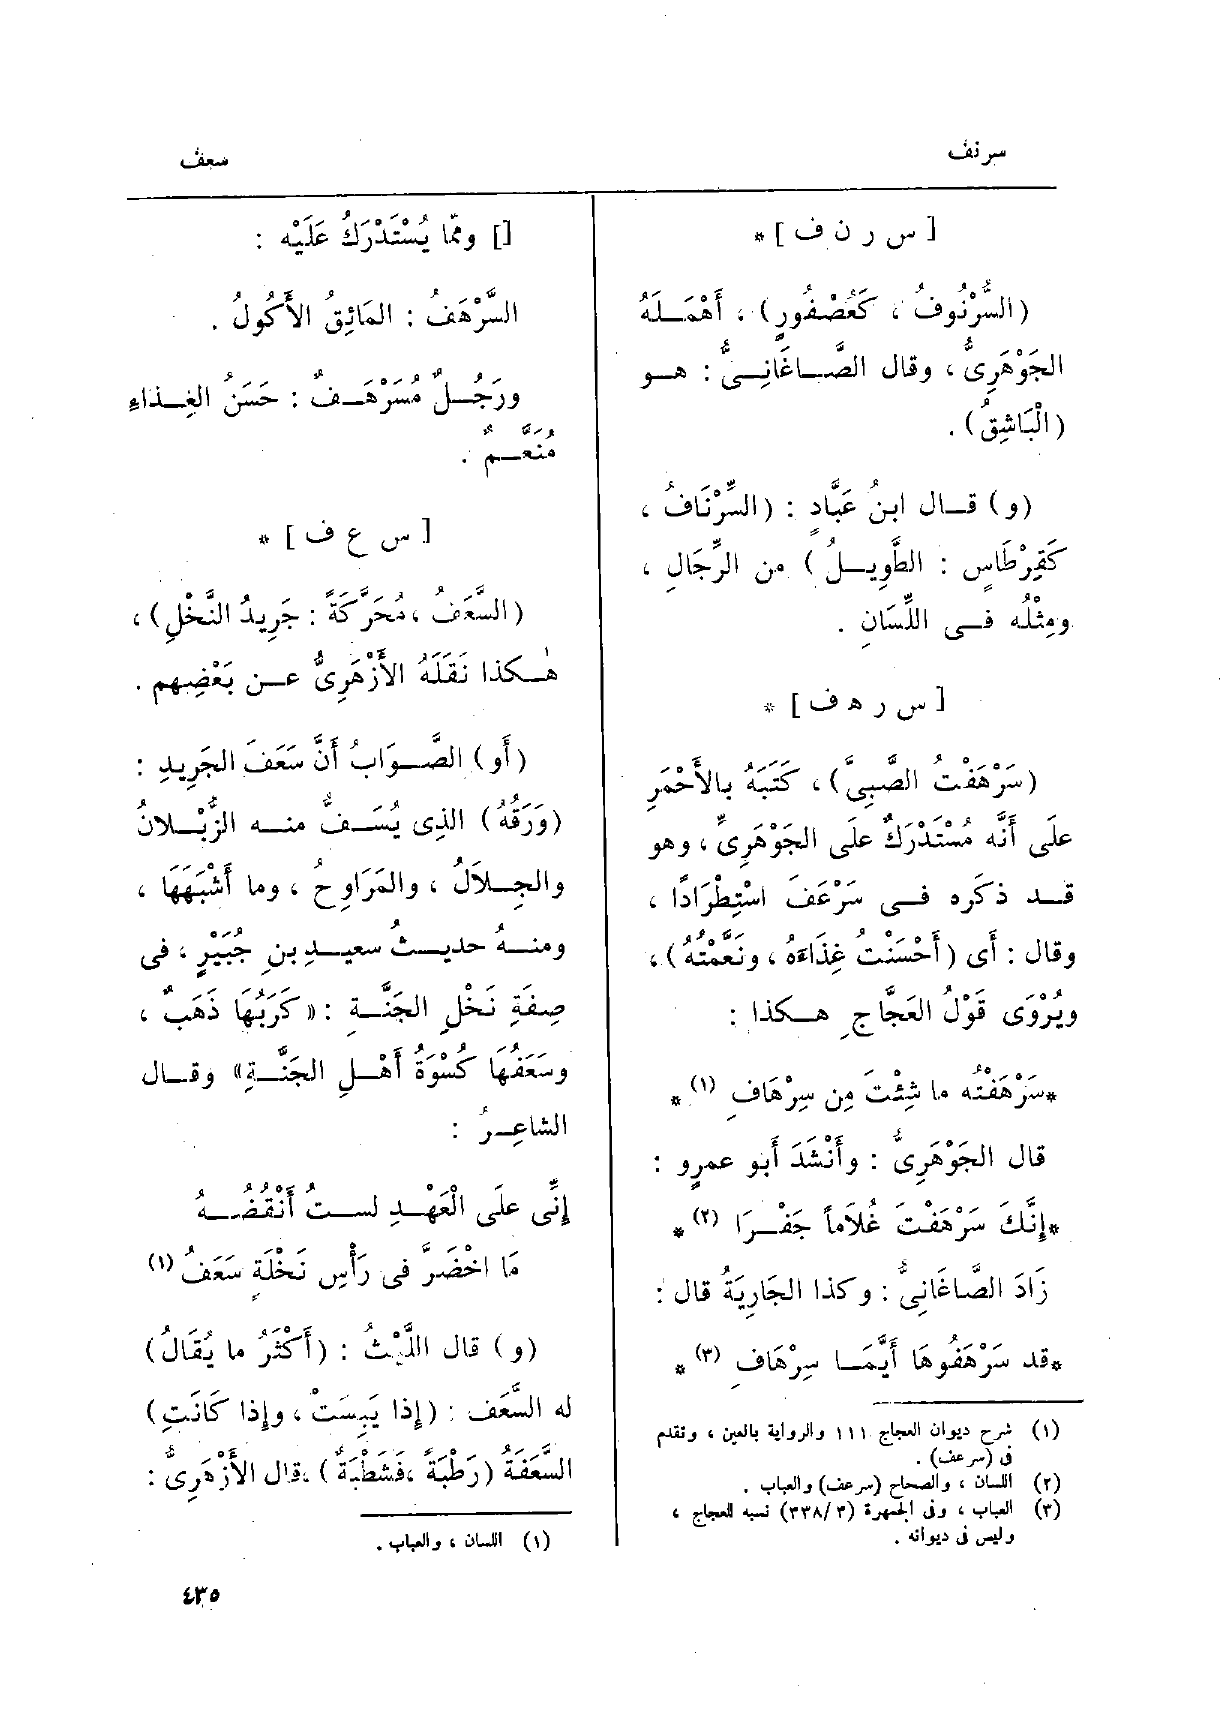 سرنف
سعف
[ س ر ن ف ] *
(السُّرْنُوفُ ، كَعُصْفُورٍ) ، أَهْمَلَهُ
الجَوْهَرِىُّ ، وقال الصَّاغَانِىُّ : هو
(الْبَاشِقُ) .
(و) قال ابنُ عَبَّادٍ : (السِّرْنَافُ ،
كَقِرْطَاسٍ : الطَّوِيلُ) من الرِّجَالِ ،
ومِثْلُه فى اللِّسَانِ .
[ س ر ه ف ] *
(سَرْهَفْتُ الصَّبِىَّ) ، كَتَبَهُ بالأَحْمَرِ
علَى أَنَّه مُسْتَدْرَكٌ علَى الجَوْهَرِىِّ ، وهو
قد ذكَره فى سَرْعَفَ اسْتِطْرَادًا ،
وقال : أَى (أَحْسَنْتُ غِذَاءَهُ ، ونَعَّمْتُهُ) ،
ويُرْوَى قَوْلُ العَجَّاجِ هكذا :
*سَرْهَفْتُه ما شِئْتَ مِن سِرْهَافِ (١) *
قال الجَوْهَرِىُّ : وأَنْشَدَ أَبو عمرٍو :
*إِنَّكَ سَرْهَفْتَ غُلَاماً جَفْرَا (٢) *
زَادَ الصَّاغَانِىُّ : وكذا الجَارِيَةُ قال :
*قد سَرْهَفُوهَا أَيَّمَا سِرْهَافِ (٣) *
(١) شرح ديوان العجاج ١١١ والرواية بالعين ، وتقدم
فى (سرعف) .
(٢) اللسان ، والصحاح (سرعف) والعباب .
(٣) العباب ، وفى الجمهرة (٣٣٨/٣) نسبه للعجاج ،
وليس فى ديوانه .
[] وممّا يُسْتَدْرَكُ عَلَيْه :
السَّرْهَفُ : المَائِقُ الأَكُولُ .
ورَجُلٌ مُسَرْهَفٌ : حَسَنُ الغِذاءِ
مُنَعَّمٌ .
[ س ع ف ] *
(السَّعَفُ ، مُحَرَّكَةً : جَرِيدُ النَّخْلِ) ،
هٰكذا نَقَلَهُ الأَزْهَرِىُّ عن بَعْضِهم .
(أَو) الصَّوَابُ أَنَّ سَعَفَ الجَرِيدِ :
(وَرَقُهُ) الذِى يُسَفُّ منه الزُّبْلانُ
والجِلالُ ، والمَرَاوِحُ ، وما أَشْبَهَهَا ،
ومنهُ حديثُ سعيدِ بنِ جُبَيْرٍ ، فى
صِفَةِ نَخْلِ الجَنَّةِ : «كَرَبُهَا ذَهَبٌ ،
وسَعَفُهَا كُسْوَةُ أَهْلِ الجَنَّةِ» وقال
الشاعِرُ :
إِنِّى علَى الْعَهْدِ لستُ أَنْقُضُهُ
مَا اخْضَرَّ فى رَأْسِ نَخْلَةٍ سَعَفُ (١)
(و) قال اللَّيْثُ : (أَكْثَرُ ما يُقَالُ)
له السَّعَف : (إِذا يَبِسَتْ ، وإِذا كَانَتِ)
السَّعَفَةُ (رَطْبَةً ، فَشَطْبَةٌ) ، قال الأَزْهَرِىُّ :
(١) اللسان ، والعباب .
٤٣٥